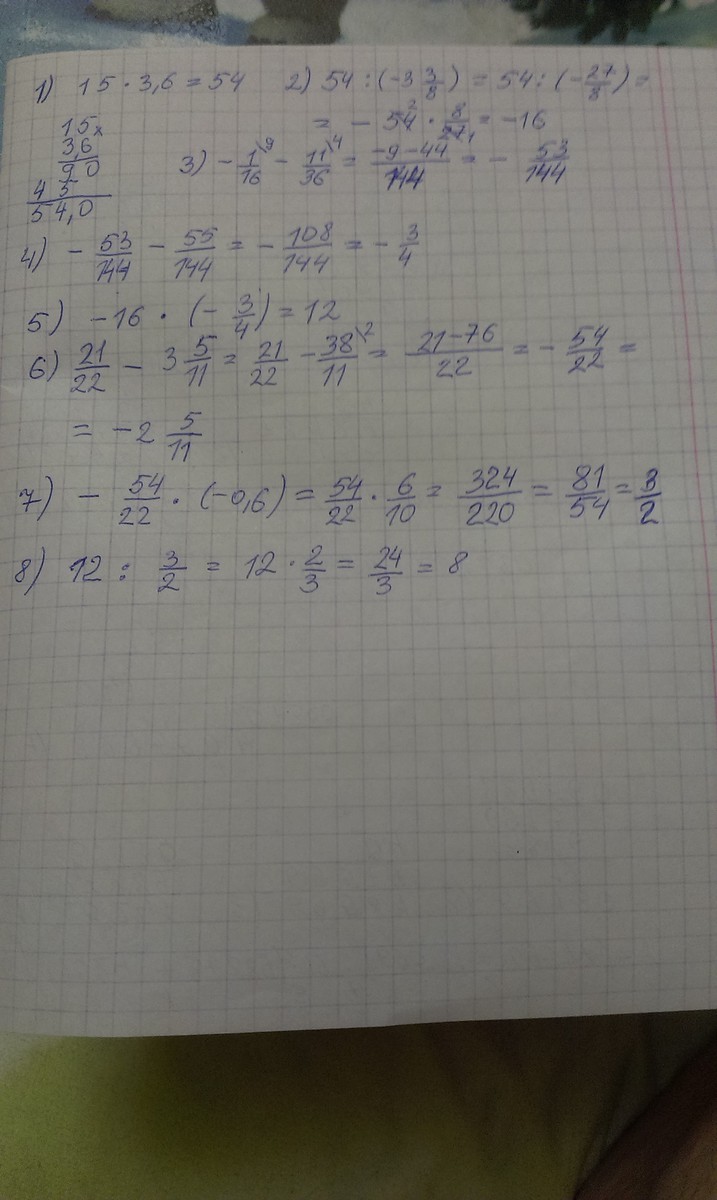 1) 15 · 3,6 = 54 2) 54 : (-3 3/8) = 54 : (-27/8) =
= - 54² · 8/27₁ = -16
15x
3,6
90
45
54,0
3) - 1/16\9 - 11/36\4 = -9-44/144 = - 53/144
4) - 53/144 - 55/144 = - 108/144 = - 3/4
5) -16 · (- 3/4) = 12
6) 21/22 - 3 5/11 = 21/22 - 38/11\2 = 21-76/22 = - 54/22 =
= -2 5/11
7) - 54/22 · (-0,6) = 54/22 · 6/10 = 324/220 = 81/54 = 3/2
8) 12 : 3/2 = 12 · 2/3 = 24/3 = 8